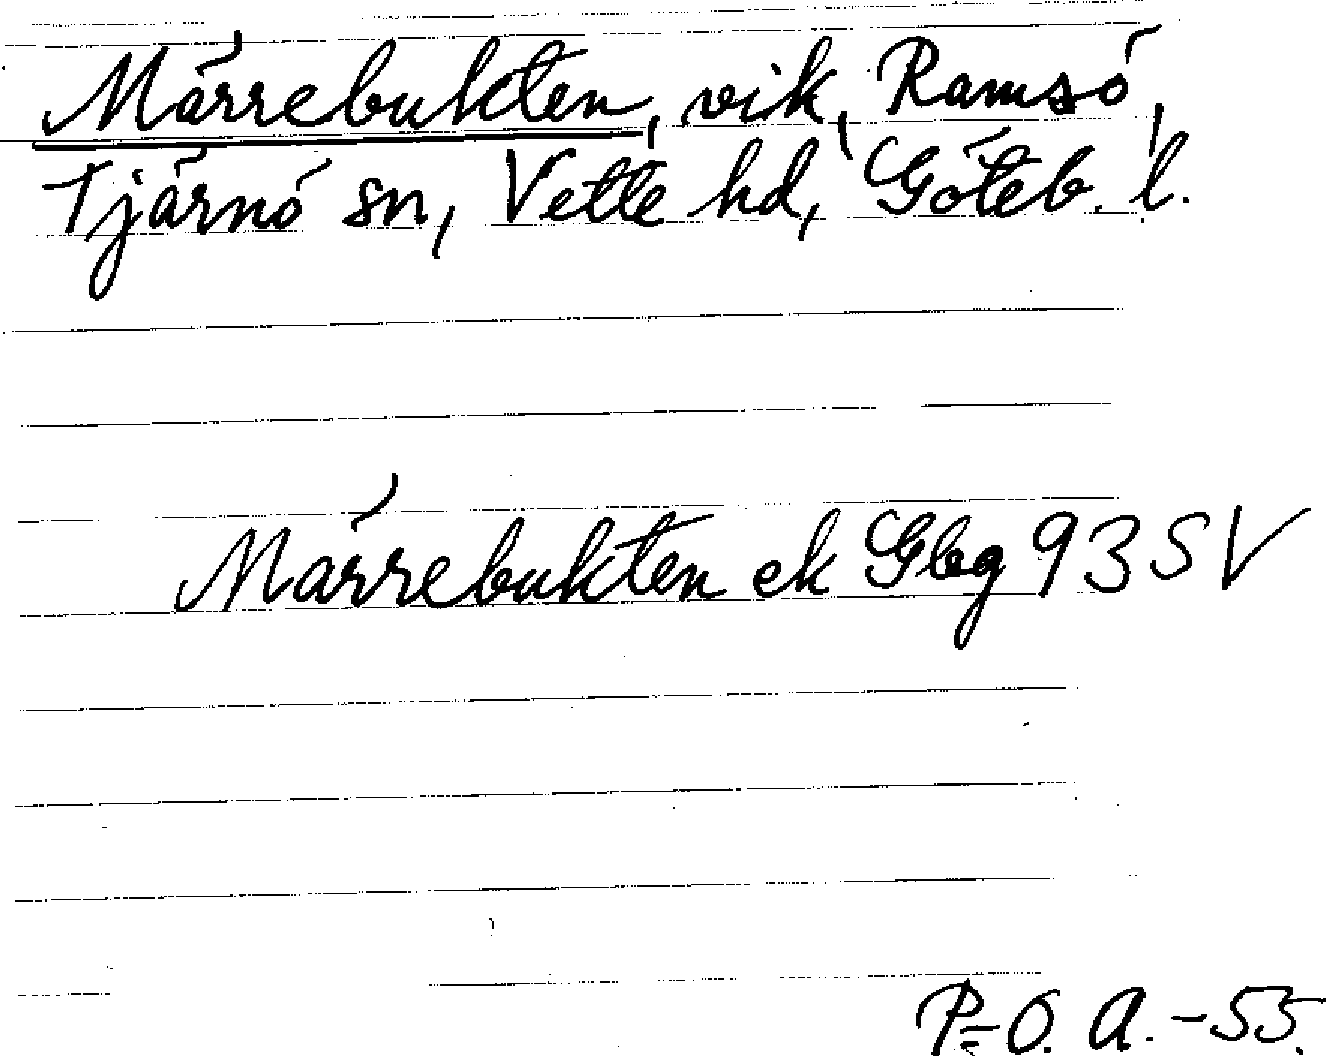 Märrebukten, vik, Ramsö,
Tjärnö sn, Vette hd, Göteb. l.
Märrebukten ek Gbg 93 SV
P=O. A. -55.